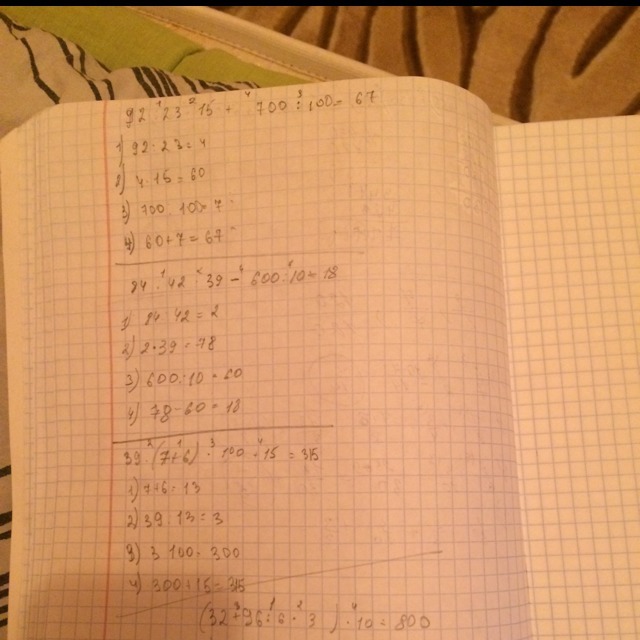 92 : 23 · 15 + 700 : 100 = 67
1) 92 : 23 = 4
2) 4 · 15 = 60
3) 700 : 10 = 7
4) 60 + 7 = 67
84 : 42 · 39 - 600 : 10 = 18
1) 84 : 42 = 2
2) 2 · 39 = 78
3) 600 : 10 = 60
4) 78 - 60 = 18
39 : (7 + 6) · 100 + 15 = 315
1) 7 + 6 = 13
2) 39 : 13 = 3
3) 3 · 100 = 300
4) 300 + 15 = 315
(32 + 96 : 6 · 3) · 10 = 800